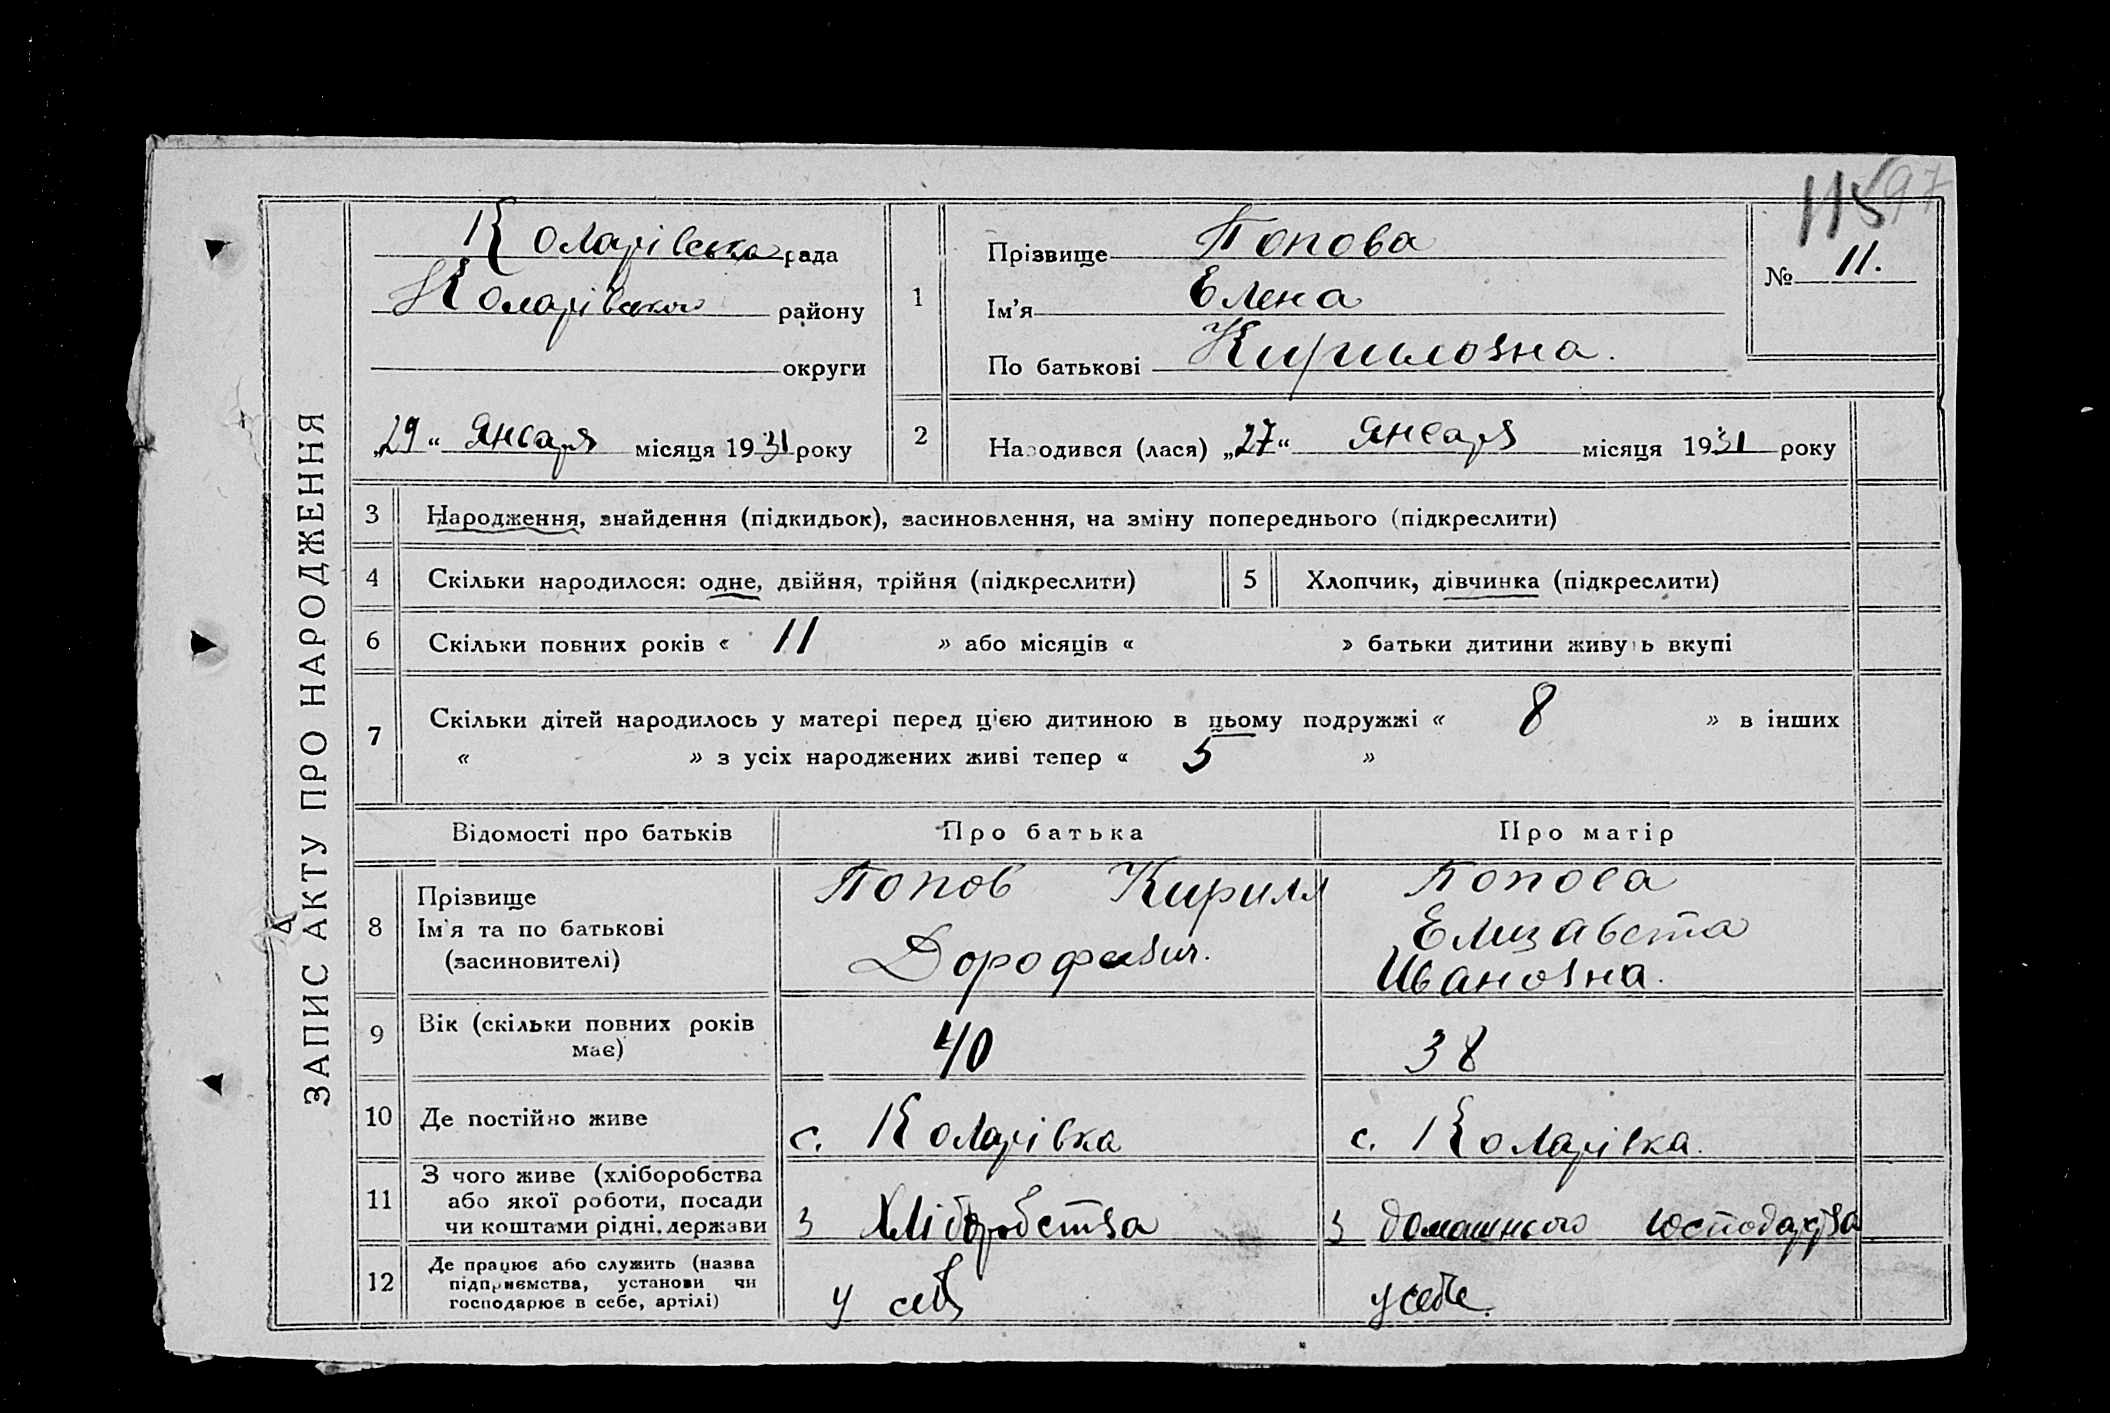 115 97
ЗАПИС АКТУ ПРО НАРОДЖЕННЯ
Коларівська рада
Коларівського району
округи
„29“ Января місяця 1931 року
1
Прізвище Попова
Ім’я Елена
По батькові Кириловна.
№ 11.
2 Народився (лася) „27“ Января місяця 1931 року
3 Народження, знайдення (підкидьок), засиновлення, на зміну попереднього (підкреслити)
4 Скільки народилося: одне, двійня, трійня (підкреслити) 5 Хлопчик, дівчинка (підкреслити)
6 Скільки повних років « 11 » або місяців « » батьки дитини живуть вкупі
7 Скільки дітей народилось у матері перед цією дитиною в цьому подружжі « 8 » в інших
« » з усіх народжених живі тепер « 5 »
Відомості про батьків Про батька Про матір
8 Прізвище
Ім’я та по батькові
(засиновителі)
Попов Кирилл
Дорофеевич.
Попова
Елизавета
Ивановна.
9 Вік (скільки повних років
має)
40 38
10 Де постійно живе с. Коларівка с. Коларівка.
11 З чого живе (хліборобства
або якої роботи, посади
чи коштами рідні, держави
з Хліборобства з домашнього господарства
12 Де працює або служить (назва
підприємства, установи чи
господарює в себе, артілі)
у себе у себе.